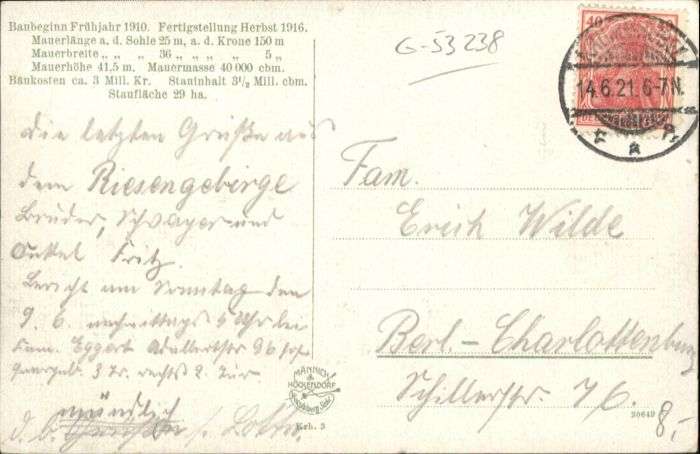 Baubeginn Frühjahr 1910. Fertigstellung Herbst 1916.
Mauerlänge a. d. Sohle 25 m, a. d. Krone 150 m
Mauerbreite „ „ „ 36 „ „ „ „ 5 „
Mauerhöhe 41.5 m. Mauermasse 40 000 cbm.
Baukosten ca. 3 Mill. Kr. Stauinhalt 3½ Mill. cbm.
Staufläche 29 ha.
G-53238
40 40
14.6.21. 6-7N.
Die letzten Grüße aus
dem Riesengebirge
Bruder, Schwager und
Onkel Fritz.
Bericht am Sonntag den
9. 6. nachmittags 5 Uhr bei
Fam. Eggert Adalbertstr 96
3 Tr. rechts 2. Tür
mündlich
Fam.
Erich Wilde
Berl.-Charlottenburg
Schillerstr. 76.
MÄNNICH & HÖCKENDORF
Krh. 3
20649
8,-